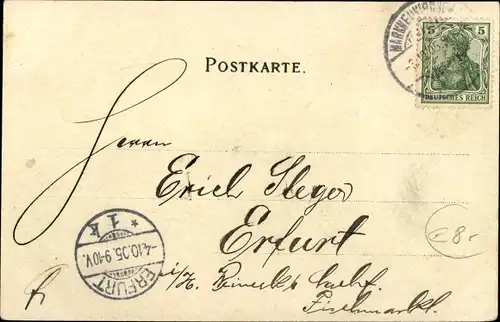 POSTKARTE.
5 5
DEUTSCHES REICH
Herrn
Erich Steger
Erfurt
i/H.
Fischmarkt.
* 1 k
-4.10.05.9-10V.
ERFURT
€8.-